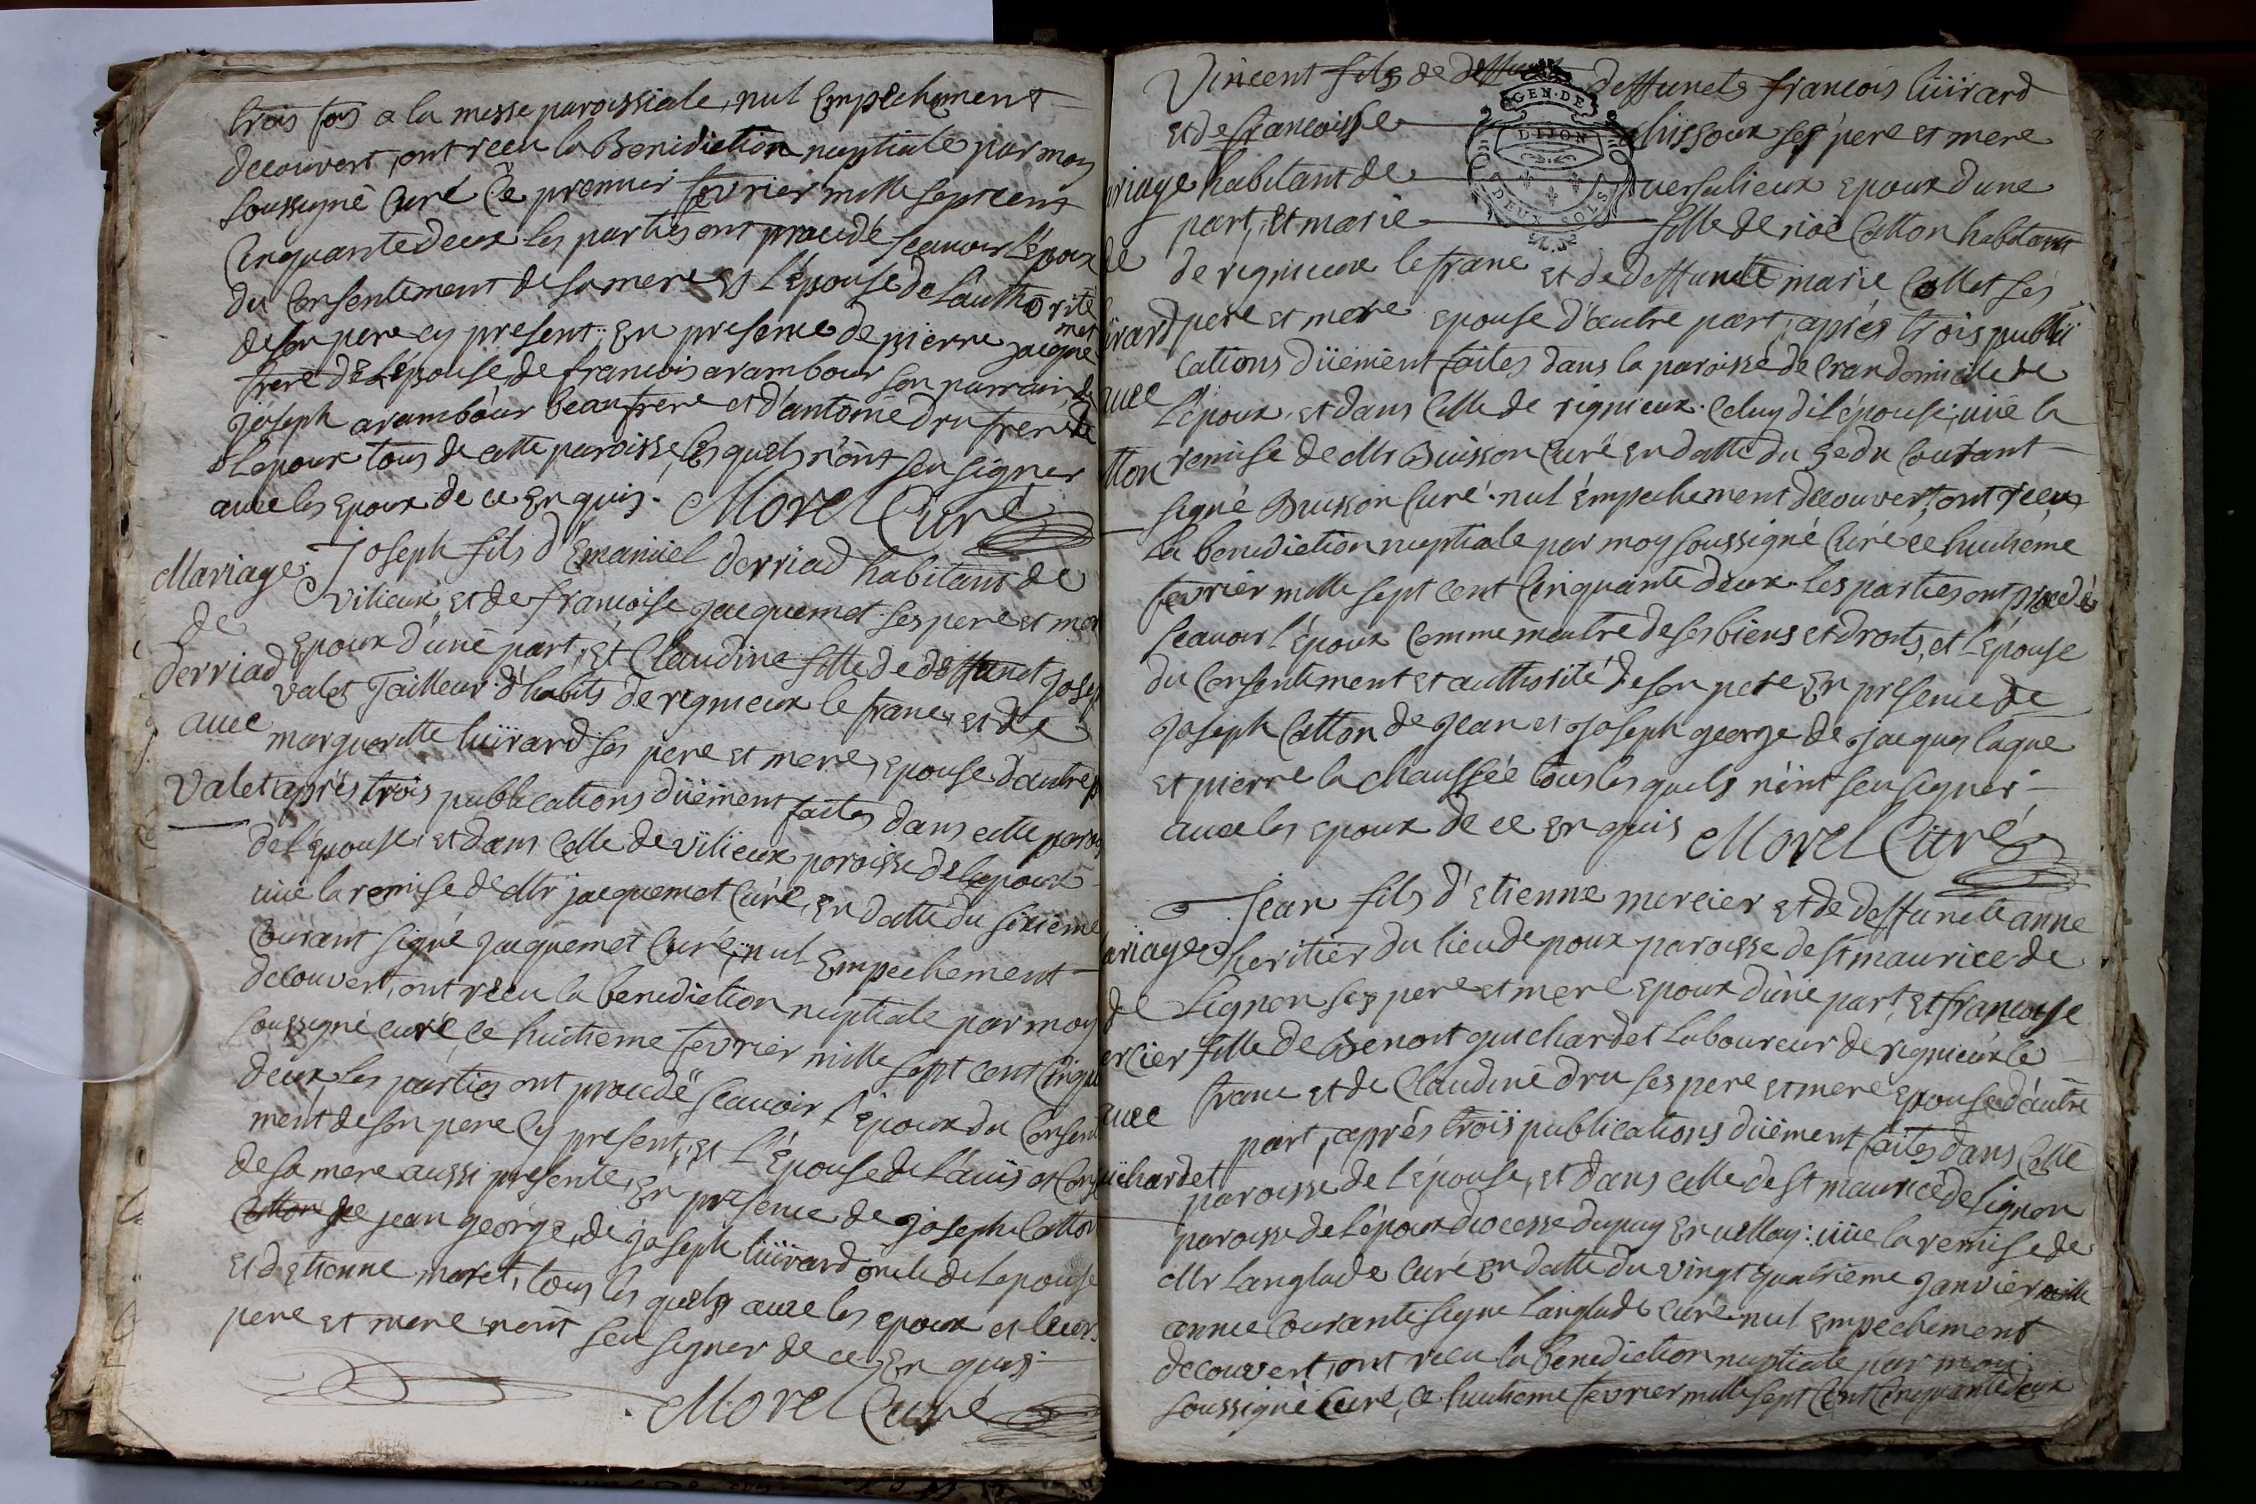 trois fois a la messe paroissiale, nul Empechement
decouvert, ont receu la Benidiction nuptiale par moy
soussigné Curé Ce premier fevrier mille sept cent
Cinquante deux les parties ont procedé scauoir l'époux
du Consentement de sa mere et l'épouse de l'authorité
de son pere cy present: En presence de pierre jacque
met
frere de l'épouse, de francois arambour son parrain, de
joseph arambour beaufrere et d'antoine dru frere de
l'epoux tous de cette paroisse, lesquels n'ont seu signer
auec les Epoux de ce Enquis. Morel Curé
Mariage
de
derriad
auec
Valet
Joseph fils d'Emanüel derriad habitant de
vilieux, et de françoise jacquemet ses pere et mer
Epoux d'une part, Et Claudine fille de deffunct Josep
valet Tailleur d'habits de rignieux le franc, et de
marguerite liüirard ses pere et mere, epouse d'autre p
après trois publications düement faites dans cette paroi
de l'épouse, et dans Celle de vilieux paroisse de lepoux
vüe la remise de Mr jacquemet Curé, en datte du sixieme
Courant signé jacquemet Curé, nul Empechement
decouvert, ont receu la benediction nuptiale par moy
soussigné curé, ce huitieme fevrier mille sept cent Cinqu
deux, les parties ont procedé scauoir l'époux du Consen
ment de son pere Cy present, et L'Epouse de l'auis et Cons
de sa mere aussi presente, En presence de joseph Catton
Catton de jean george, de joseph liüirard oncle de lepouse
Et d'Etienne moret, tous les quels auec les Epoux et leurs
pere et mere n'ont seu signer de ce Enquis
Morel Curé
Vincent fils de deffunct deffuncts francois liüirard
et de francoise ses pere et mere
habitant de versalieux epoux d'une
part, Et marie fille de Catton habitant
de rignieux le franc et de deffuncte marie Collet ses
pere et mere epouse d'autre part, aprés trois publi
cations düement faites dans la paroisse de Cran domicile de
l'époux, et dans Celle de rignieux. Celuy de l'épouse; vüe la
remise de Mr Buisson Curé en datte du 5e du Courant
signé Buisson Curé. nul Empechement decouvert, ont receu
la benediction nuptiale par moy soussigné Curé ce huitieme
fevrier mille sept cent Cinquante deux. les parties ont procedé
scauoir l'époux Comme maitre de ses biens et droits, et l'épouse
du Consentement et authorité de son pere En presence de
joseph Catton de jean et joseph george de jacques laque
et pierre la chaussée tous les quels n'ont seu signer
auec les epoux de ce Enquis Morel Curé
riage
de
irard
auec
tton
ariage
de
ercier
auec
uichardet
Jean fils d'Etienne mercier et de deffuncte anne
heritier du lieu de poux paroisse de st maurice de
Lignon ses pere et mere epoux d'une part, et francoise
fille de Benoit guichardet laboureur de rignieux le
franc et de Claudine dru ses pere et mere epouse d'autre
part, aprés trois publications düement faites dans Cette
paroisse de l'épouse, et dans celle de st maurice de Lignon
paroisse de l'époux diocesse du puy En vellay: vüe la remise de
Mr Langlade Curé En datte du vingt quatrieme janvier mille
année Courante signe Langlade Curé nul Empechement
decouvert, ont receu la benediction nuptiale par moy
soussigné Curé, ce huitieme fevrier mille sept Cent Cinquante deux
GEN. DE
DIJON
DEUX SOLS